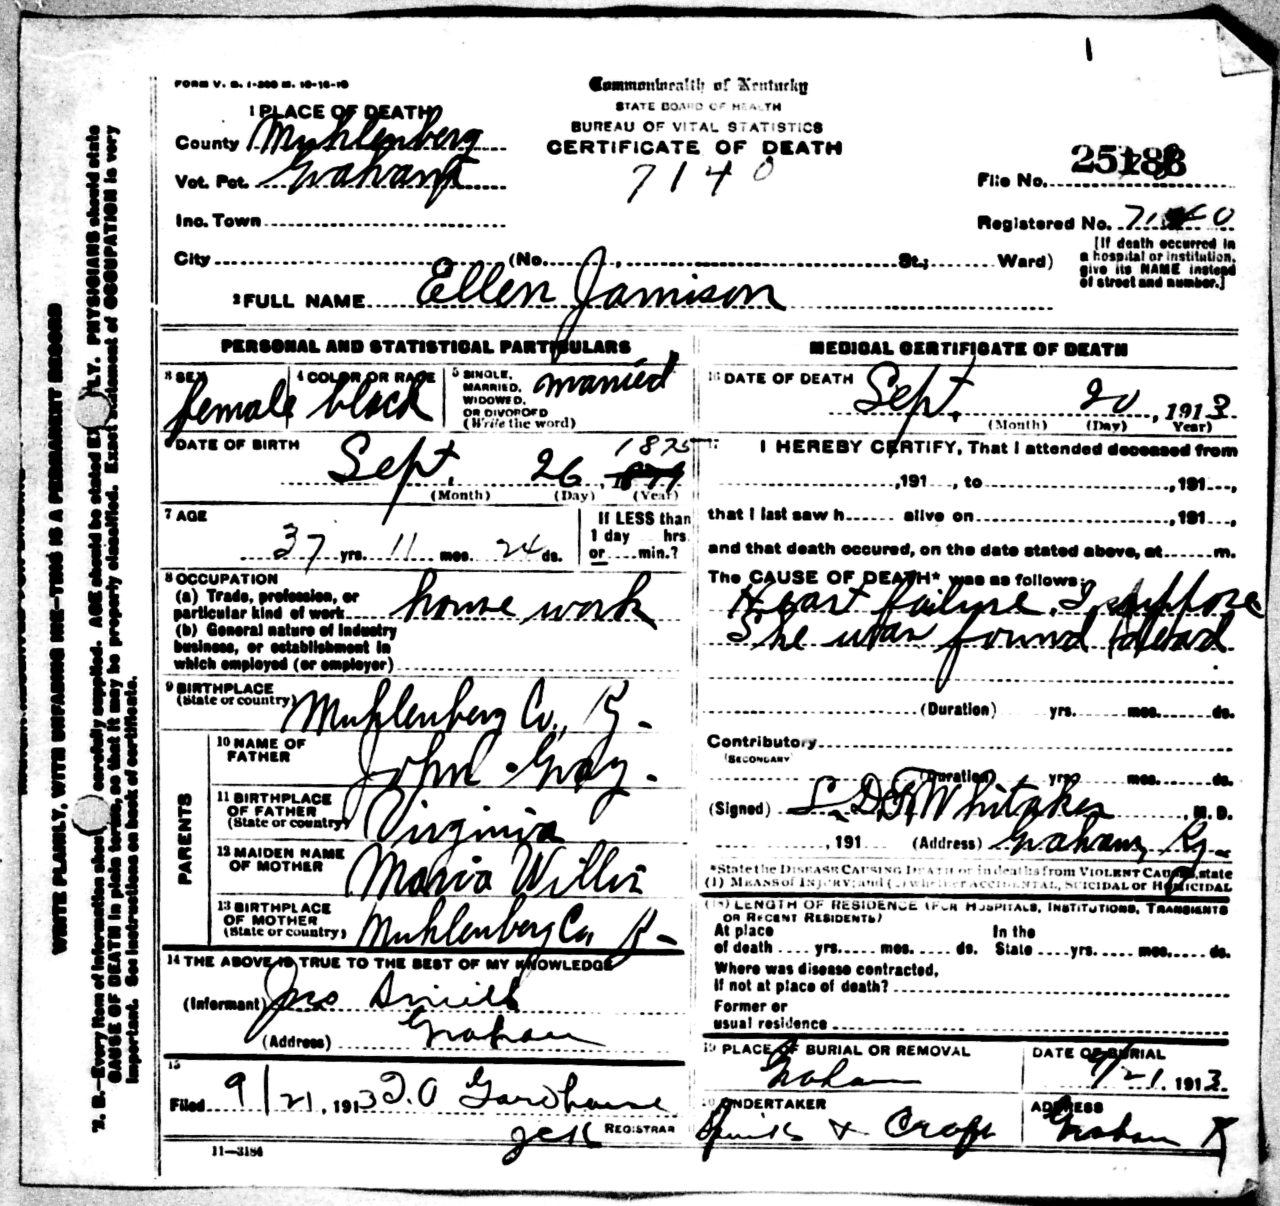 1
FORM V. S. 1-200 M. 10-16-10
Commonwealth of Kentucky
STATE BOARD OF HEALTH
BUREAU OF VITAL STATISTICS
CERTIFICATE OF DEATH
7140
1 PLACE OF DEATH
County Muhlenberg
Vot. Pct. Graham
Inc. Town
City (No. , St.; Ward)
File No. 25188
Registered No. 7140
[If death occurred in
a hospital or institution,
give its NAME instead
of street and number.]
2 FULL NAME Ellen Jamison
PERSONAL AND STATISTICAL PARTICULARS
3 SEX female
4 COLOR OR RACE black
5 SINGLE,
MARRIED,
WIDOWED,
OR DIVORCED
(Write the word) married
6 DATE OF BIRTH
Sept. 26 1875
(Month) (Day) (Year)
7 AGE
37 yrs. 11 mos. 24 ds.
If LESS than
1 day hrs.
or min.?
8 OCCUPATION
(a) Trade, profession, or
particular kind of work house work
(b) General nature of industry
business, or establishment in
which employed (or employer)
9 BIRTHPLACE
(State or country) Muhlenberg Co., Ky.
PARENTS
10 NAME OF
FATHER John Gray.
11 BIRTHPLACE
OF FATHER
(State or country) Virginia
12 MAIDEN NAME
OF MOTHER Maria Willis
13 BIRTHPLACE
OF MOTHER
(State or country) Muhlenberg Co, K
14 THE ABOVE IS TRUE TO THE BEST OF MY KNOWLEDGE
(Informant) Jno
(Address) Graham
15
Filed 9/21, 1913 D.O
REGISTRAR
11-3184
MEDICAL CERTIFICATE OF DEATH
16 DATE OF DEATH
Sept. 20, 1913
(Month) (Day) Year)
17 I HEREBY CERTIFY, That I attended deceased from
,191 , to ,191 ,
that I last saw h alive on ,191 ,
and that death occured, on the date stated above, at m.
The CAUSE OF DEATH* was as follows:
Heart failure, I suppose
She was found dead
(Duration) yrs. mos. ds.
Contributory
(SECONDARY)
(Duration) yrs. mos. ds.
(Signed) Whitaker, M. D.
, 191 (Address) Graham, Ky.
*State the DISEASE CAUSING DEATH or in deaths from VIOLENT CAUSES, state
(1) MEANS OF INJURY; and (2) whether ACCIDENTAL, SUICIDAL or HOMICIDAL
(18) LENGTH OF RESIDENCE (FOR HOSPITALS, INSTITUTIONS, TRANSIENTS
OR RECENT RESIDENTS)
At place
of death yrs. mos. ds.
In the
State yrs. mos. ds.
Where was disease contracted,
If not at place of death?
Former or
usual residence
19 PLACE OF BURIAL OR REMOVAL
Graham
DATE OF BURIAL
9/21, 1913
20 UNDERTAKER
&
ADDRESS
Graham K
WRITE PLAINLY, WITH UNFADING INK-THIS IS A PERMANENT RECORD
N. B.-Every item of information should carefully supplied. AGE should be stated EXACTLY. PHYSICIANS should state
CAUSE OF DEATH in plain terms, so that it may be properly classified. Exact statement of OCCUPATION is very
important. See instructions on back of certificate.